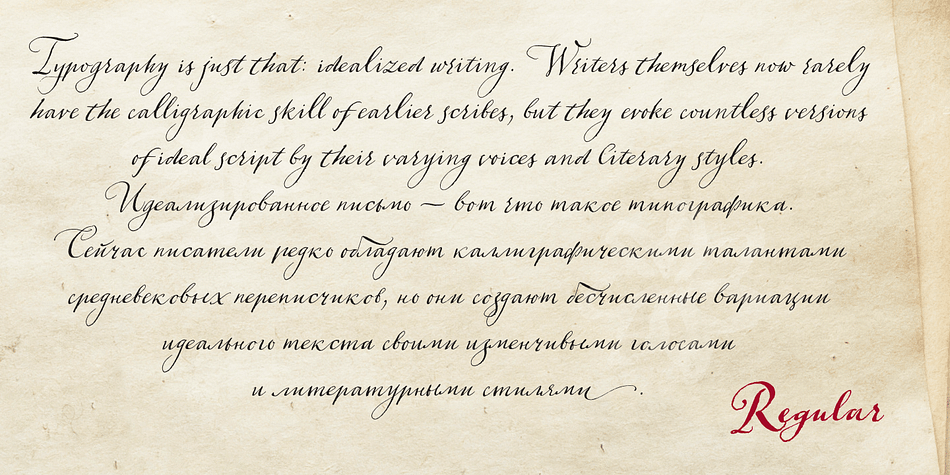 Typography is just that: idealized writing. Writers themselves now rarely
have the calligraphic skill of earlier scribes, but they evoke countless versions
of ideal script by their varying voices and literary styles.
Идеализированное письмо — вот что такое типографика.
Сейчас писатели редко обладают каллиграфическими талантами
средневековых переписчиков, но они создают бесчисленные вариации
идеального текста своими изменчивыми голосами
и литературными стилями.
Regular